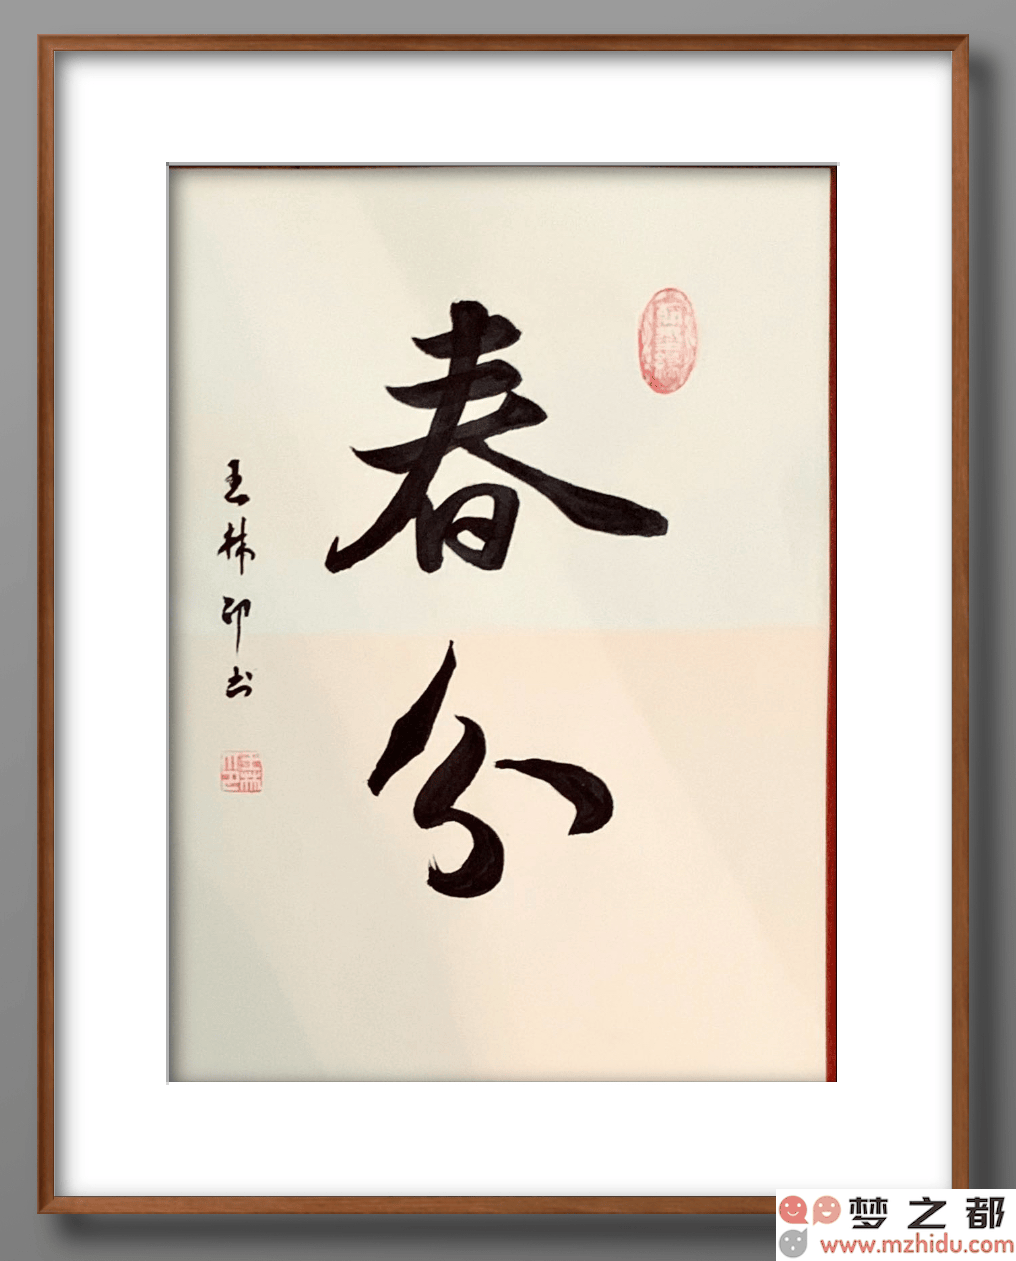 春分
王林印书
梦之都
www.mzhidu.com